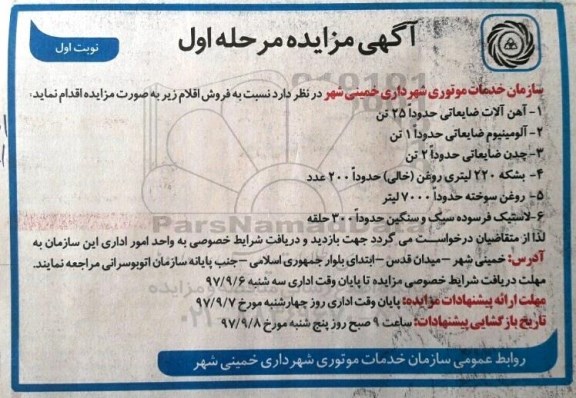 آگهی مزایده مرحله اول
نوبت اول
سازمان خدمات موتوری شهرداری خمینی شهر در نظر دارد نسبت به فروش اقلام زیر به صورت مزایده اقدام نماید:
۱- آهن آلات ضایعاتی حدوداً ۲۵ تن
۲- آلومینیوم ضایعاتی حدوداً ۱ تن
۳- چدن ضایعاتی حدوداً ۲ تن
۴- بشکه ۲۲۰ لیتری روغن (خالی) حدوداً ۲۰۰ عدد
۵- روغن سوخته حدوداً ۷۰۰۰ لیتر
۶- لاستیک فرسوده سبک و سنگین حدوداً ۳۰۰ حلقه
لذا از متقاضیان درخواست می گردد جهت بازدید و دریافت شرایط خصوصی به واحد امور اداری این سازمان به
آدرس: خمینی شهر – میدان قدس – ابتدای بلوار جمهوری اسلامی – جنب پایانه سازمان اتوبوسرانی مراجعه نمایند.
مهلت دریافت شرایط خصوصی مزایده تا پایان وقت اداری سه شنبه ۹۷/۹/۶
مهلت ارائه پیشنهادات مزایده: پایان وقت اداری روز چهارشنبه مورخ ۹۷/۹/۷
تاریخ بازگشایی پیشنهادات: ساعت ۹ صبح روز پنج شنبه مورخ ۹۷/۹/۸
روابط عمومی سازمان خدمات موتوری شهرداری خمینی شهر
ParsNamadData